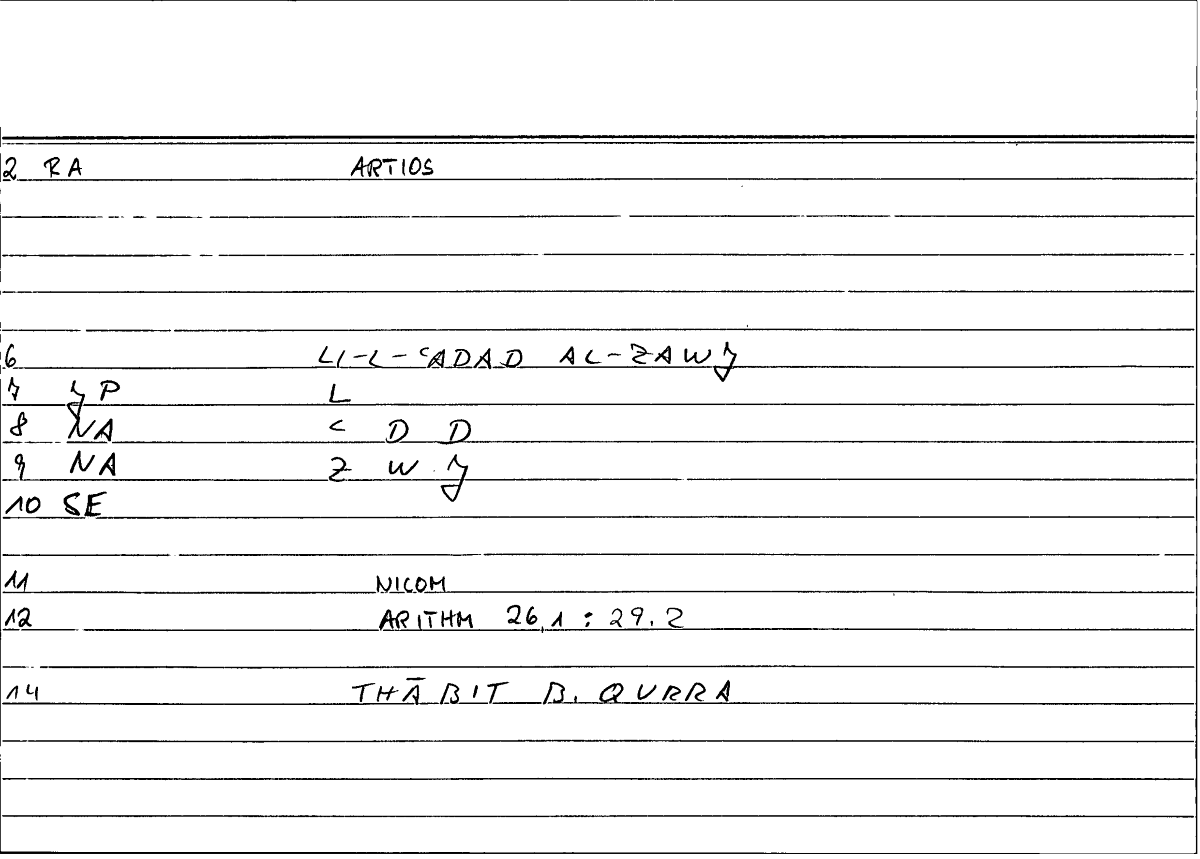 2 RA ARTIOS
6 LI-L-ʿADAD AL-ZAWJ
7 JP L
8 NA ʿ D D
9 NA Z W J
10 SE
11 NICOM
12 ARITHM 26,1 : 29.2
14 THĀBIT B. QURRA